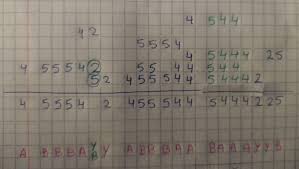 4 544
42
5554
4 5444 25
4 5554② 55 44 544
52 455544 54442
4 5554 2 455544 5444225
A BBBA Y ABBBAA BAAAYYB